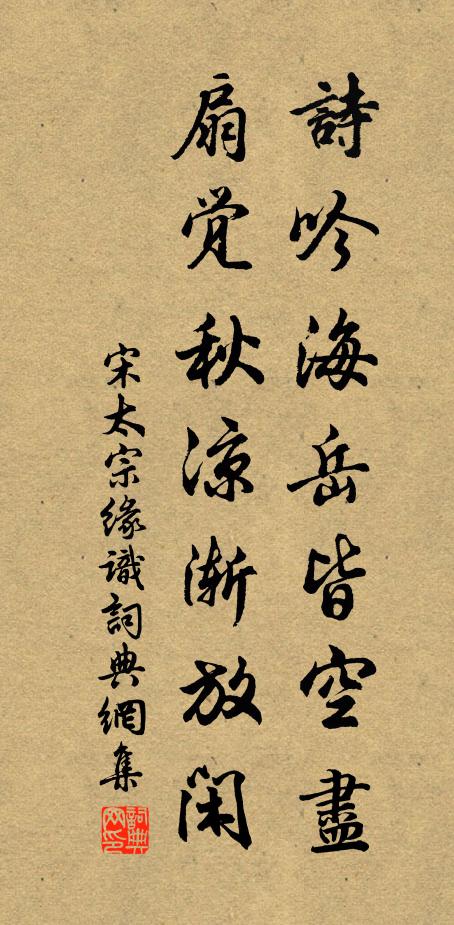 詩吟海岳皆空盡
扇觉秋凉渐放闲
宋太宗緣識詞典網集
詞典网印